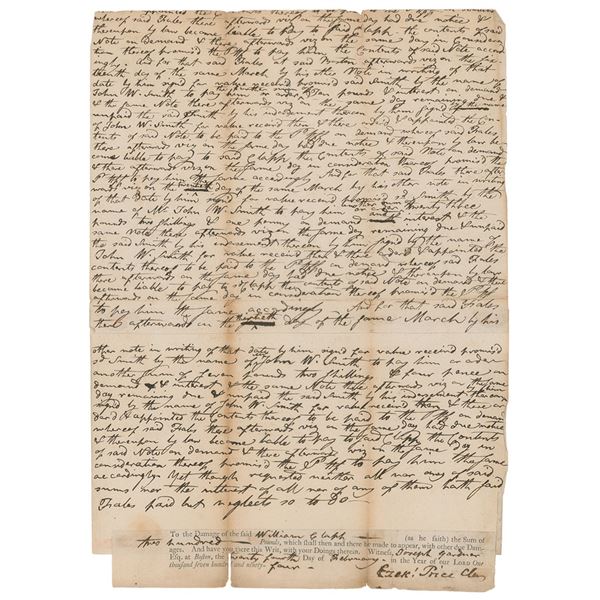 whereof said Fales there afterwards viz on the same day had due notice &
thereupon by law became liable to pay to said Clapp the contents of said
Note on demand & there afterwards viz on the same day in consideration
thereof promised the Plff to pay him the Contents of said Note accord
ingly. And for that said Fales at said Boston afterwards viz on the
teenth day of the same March by his other Note in writing of that
date by him signed for value received promised said Smith by the name of
John W. Smith to pay him or order Ten pounds & interest on demand
& the same Note there afterwards viz on the same day remaining due &
unpaid the said Smith by his indorsement thereon by him signed by the name
of John W. Smith for value received then & there ordered & appointed the Con
tents of said Note to be paid to the Plff on demand whereof said Fales
there afterwards viz on the same day had due notice & thereupon by law be
came liable to pay to said Clapp the Contents of said Note on demand
& there afterwards viz on the same day in consideration thereof promised the
Plff to pay him the same accordingly And for that said Fales there after
wards viz on the twentieth day of the same March by his other note in writing
of that Date by him signed for value received promised said Smith by the
name of Mr. John W. Smith to pay him twenty three
pounds two shillings & one penny on demand and interest & the
same Note there afterwards viz on the same day remaining due & unpaid
the said Smith by his indorsement thereon by him signed by the name of
John W. Smith for value received then & there ordered & appointed the
contents thereof to be paid to the Plff on demand whereof said Fales
there afterwards on the same day had due notice & thereupon by law
became liable to pay to Clapp the contents of said Note on demand & there
afterwards on the same day in consideration thereof promised the Plff
to pay him the same accordingly And for that said Fales
there afterwards on the thirtieth day of the same March by his
other note in writing of that date by him signed for value received promised
said Smith by the name of John W. Smith to pay him or order
another sum of seven pounds two shillings & four pence on
demand & interest & the same Note there afterwards viz on the same
day remaining due & unpaid the said Smith by his indorsement thereon
signed by the name of John W. Smith for value received then & there or
dered & appointed the Contents thereof to be paid to the Plff on demand
whereof said Fales there afterwards viz on the same day had due notice
& thereupon by law became liable to pay to said Clapp the Contents
of said Note on demand & there afterwards viz on the same Day in
consideration thereof promised the Plff to pay him the same
accordingly Yet though requested neither all nor any of said
sums nor the interest of all nor of any of them hath said
Fales paid but neglects so to do
To the Damage of the said William Clapp (as he saith) the Sum of
two hundred Pounds, which shall then and there be made to appear, with other due Dam-
ages. And have you there this Writ, with your Doings therein. Witness, Joseph Gardner
Esq; at Boston, the twenty fourth Day of February in the Year of our LORD One
thousand seven hundred and ninety four
Ezek: Price Cler